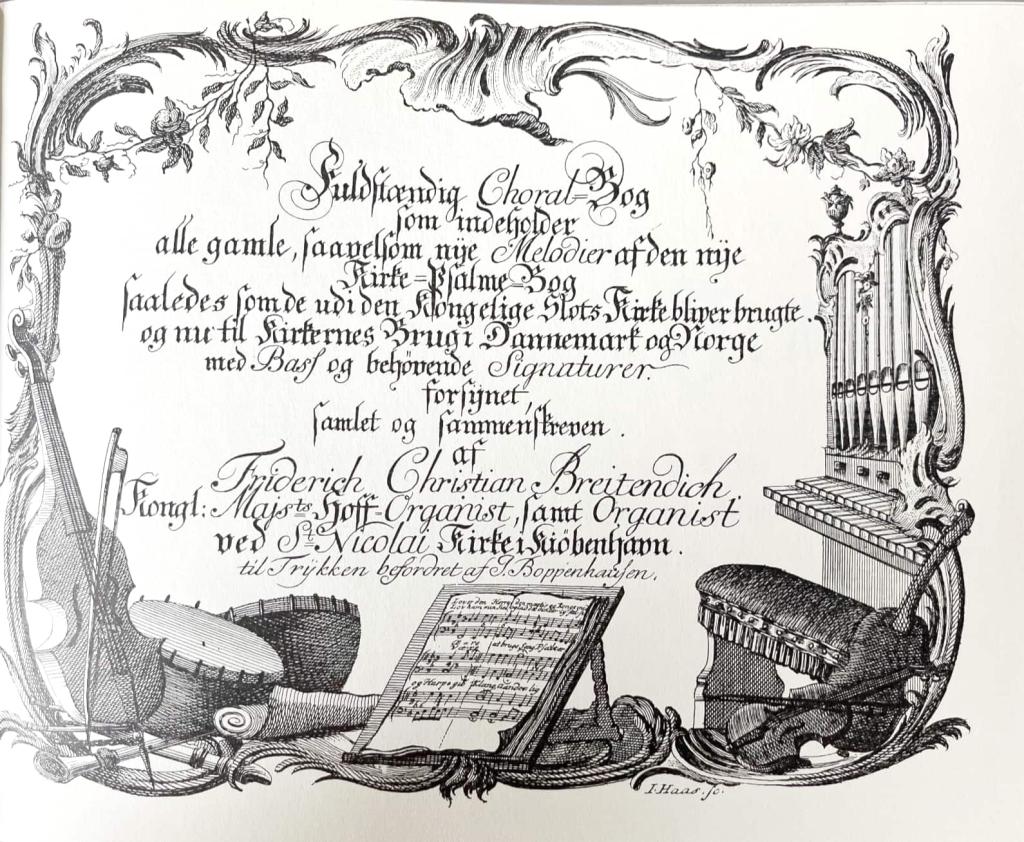 Fuldstændig Choral=Bog
som indeholder
alle gamle, saavelsom nÿe Melodier af den nÿe
Kirke=Psalme=Bog
saaledes som de udi den Kongelige Slots Kirke bliver brugte.
og nu til Kirkernes Brug i Dannemark og Norge
med Bass og behövende Signaturer.
forsÿnet,
samlet og sammenskreven.
af
Friderich Christian Breitendich,
Kongl: Majsts Hoff-Organist, samt Organist
ved St Nicolai Kirke i Kiöbenhavn.
til Trÿkken befordret af J. Boppenhausen.
Lover den Herre
og Harpe
I. Haas. sc.